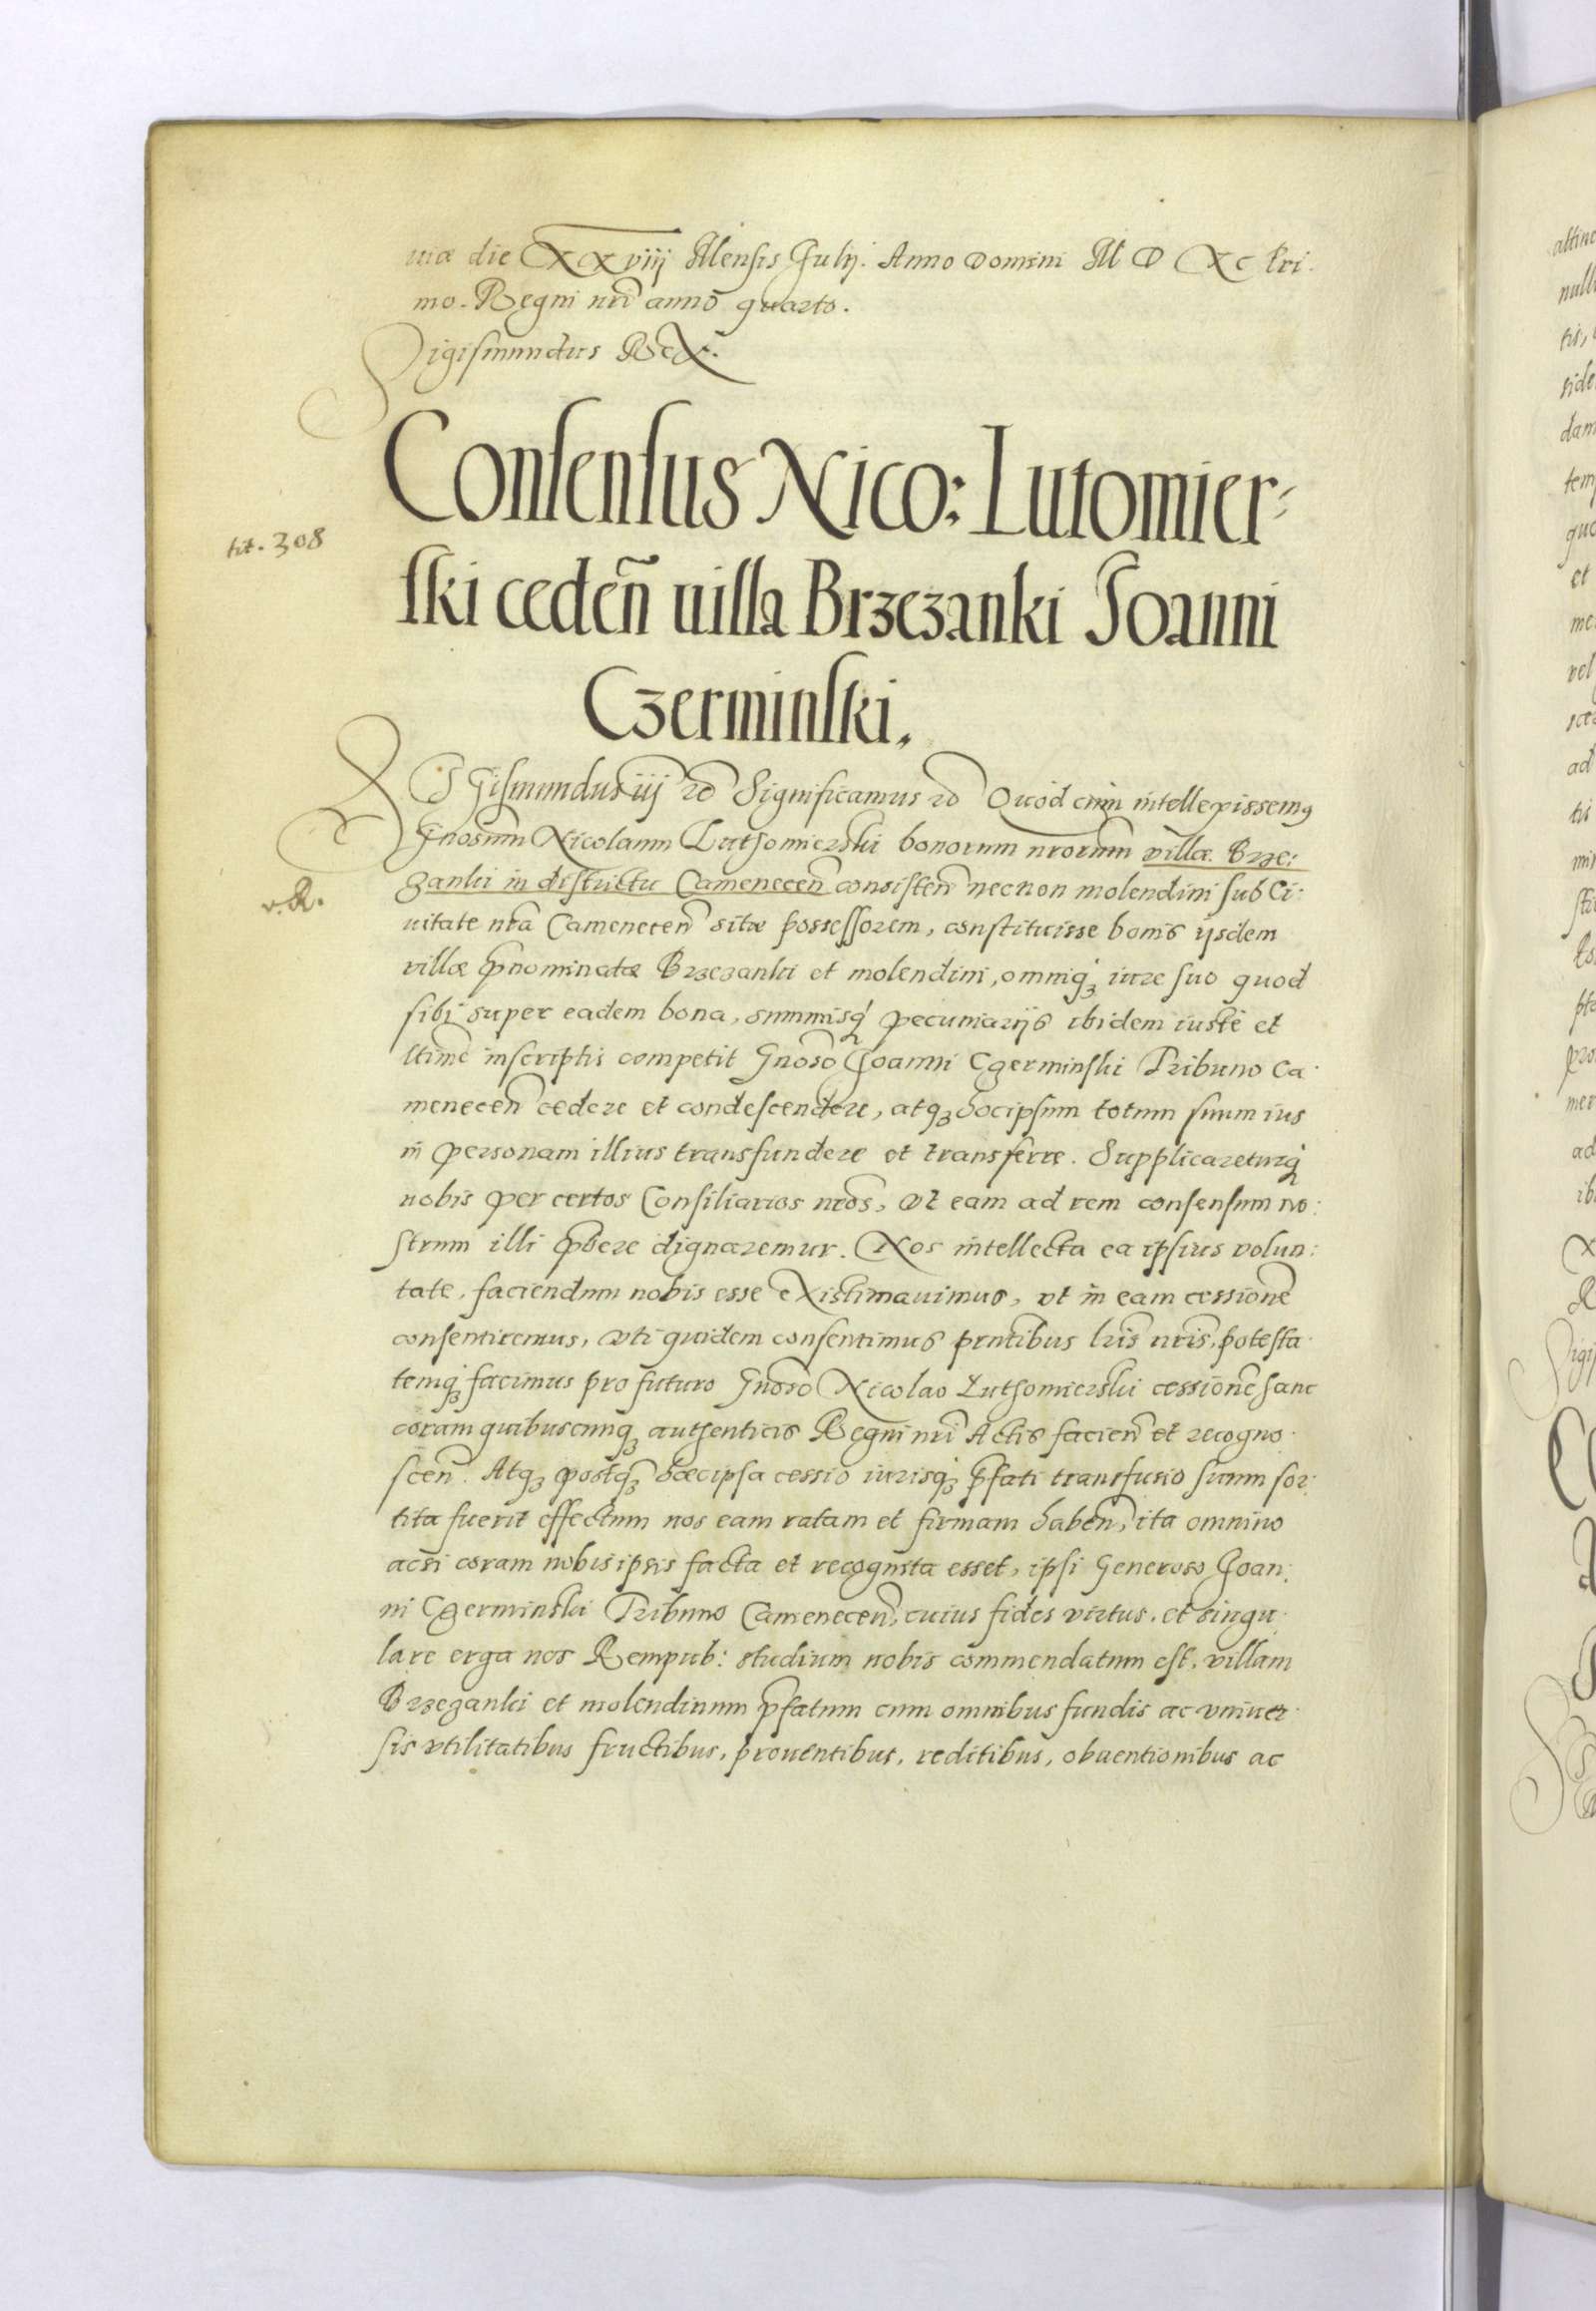 uiæ die XXviij Mensis Julij. Anno Domini M D XC Pri.
mo. Regni nri anno quarto.
Sigismundus Rex.
Consensus Nico: Lutomier⸗
ski cedeñ uilla Brzezanki Joanni
Czerminski.
tit. 308
SIGismundus iij &c Significamus &c Quod cum intellexissemus
Gnosum Nicolaum Luthomierski bonorum nrorum villæ Brze:
zanki in districtu Camenecen̄ consisten̄ necnon molendini sub Ci:
v. R.
uitate nrã Camenecen̄ sitæ possessorem, constituisse bonis ijsdem
villæ p̄nominatæ Brzezanki et molendini, omniq3 iure suo quod
sibi super eadem bona, summisq3 pecuniarijs ibidem iustè et
ltimè inscriptis competit Gnoso Joanni Czerminski Tribuno Ca
menecen̄ cedere et condescendere, atq3 hocipsum totum suum ius
in personam illius transfundere et transferre. Supplicareturq3
nobis per certos Consiliarios nros, vt eam ad rem consensum no:
strum illi p̄bere dignaremur. Nos intellecta ea ipsius volun:
tate, faciendum nobis esse eXistimauimus, vt in eam cessionē
consentiremus, vti quidem consentimus prntibus lris nris, potesta
temq3 facimus pro futuro Gnoso Nicolao Luthomierski cessionē hanc
coram quibuscunq3 authenticis Regni nri Actis facien̄ et recogno
scen̄. Atq3 postq3 hæcipsa cessio iurisq3 p̄fati transfusio suum sor:
tita fuerit effectum nos eam ratam et firmam haben̄, ita omnino
acsi coram nobis ipsis facta et recognita esset, ipsi Generoso Joan:
ni Czerminski Tribuno Camenecen̄, cuius fides virtus, et singu
lare erga nos Rempub: studium nobis commendatum est, villam
Brzezanki et molendinum p̄fatum cum omnibus fundis ac vniuer
sis vtilitatibus fructibus, prouentibus, reditibus, obuentionibus ac